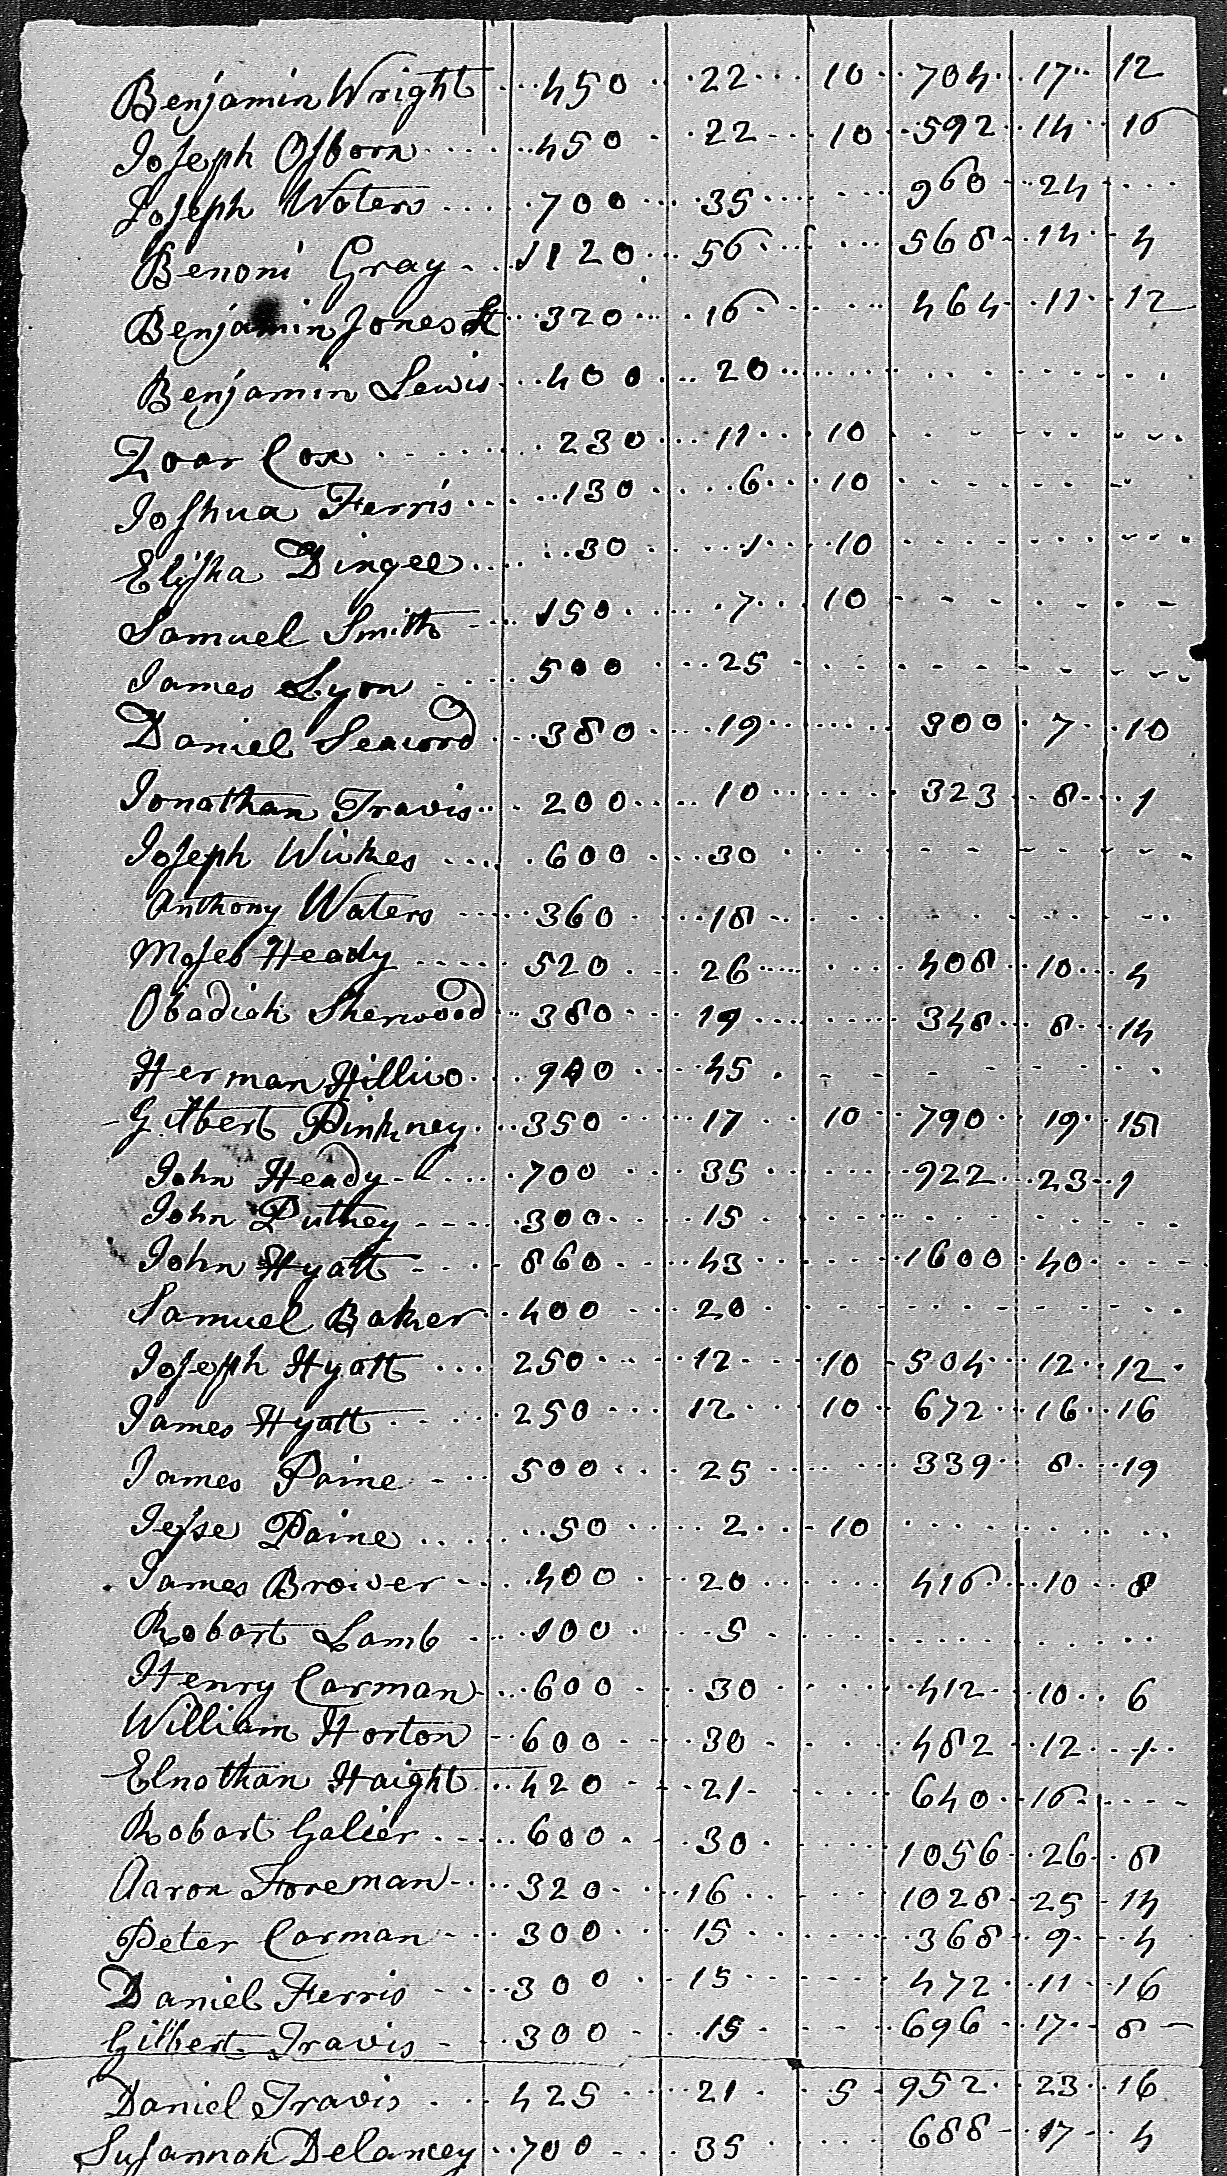 Benjamin Wright 450 22 10 704 17 12
Joseph Osborn 450 22 10 592 14 16
Joseph Waters 700 35 960 24
Benoni Gray 1120 56 568 14 4
Benjamin Jones 320 16 464 11 12
Benjamin Lewis 400 20
Zoar Cox 230 11 10
Joshua Ferris 130 6 10
Elisha Dingee 30 1 10
Samuel Smith 150 7 10
James Lyon 500 25
Daniel Seacord 380 19 300 7 10
Jonathan Travis 200 10 323 8 1
Joseph Wickes 600 30
Anthony Waters 360 18
Moses Heady 520 26 408 10 4
Obadiah Sherwood 380 19 348 8 14
Herman 900 45
Gilbert Pinkney 350 17 10 790 19 15
John Heady 700 35 922 23 1
John Putney 300 15
John Hyatt 860 43 1600 40
Samuel Baker 400 20
Joseph Hyatt 250 12 10 504 12 12
James Hyatt 250 12 10 672 16 16
James Paine 500 25 339 8 19
Jesse Paine 50 2 10
James Brower 400 20 416 10 8
Robart Lamb 100 5
Henry Carman 600 30 412 10 6
William Horton 600 30 482 12 1
Elnathan Haight 420 21 640 16
Robart Galier 600 30 1056 26 8
Aaron Foreman 320 16 1028 25 14
Peter Carman 300 15 368 9 4
Daniel Ferris 300 15 472 11 16
Gilbert Travis 300 15 696 17 8
Daniel Travis 425 21 5 952 23 16
Susannah Delancey 700 35 688 17 4